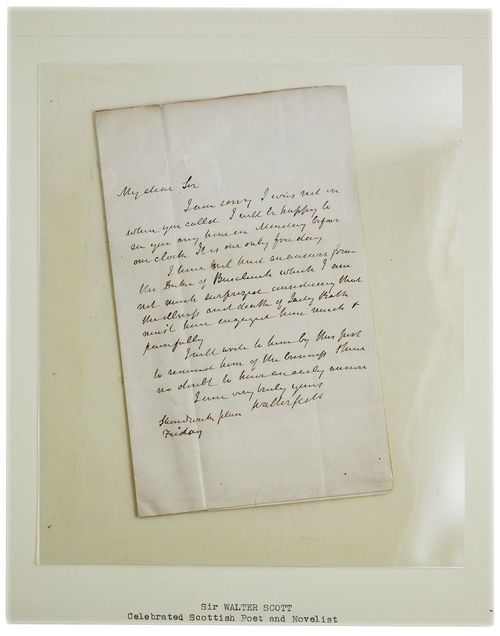 My dear Sir
I am sorry I was not in
when you called I will be happy to
see you any time on Monday before
one clock It is our only free day
I have not had an answer from
the Duke of Buccleuch which I am
not much surprized considering that
the illness and death of Lady
must have engaged him much &
painfully
I will write to him by this post
to remind him of the business I have
no doubt to have an early answer
I am very truly yours
Walter Scott
place
Friday
Sir WALTER SCOTT
Celebrated Scottish Poet and Novelist